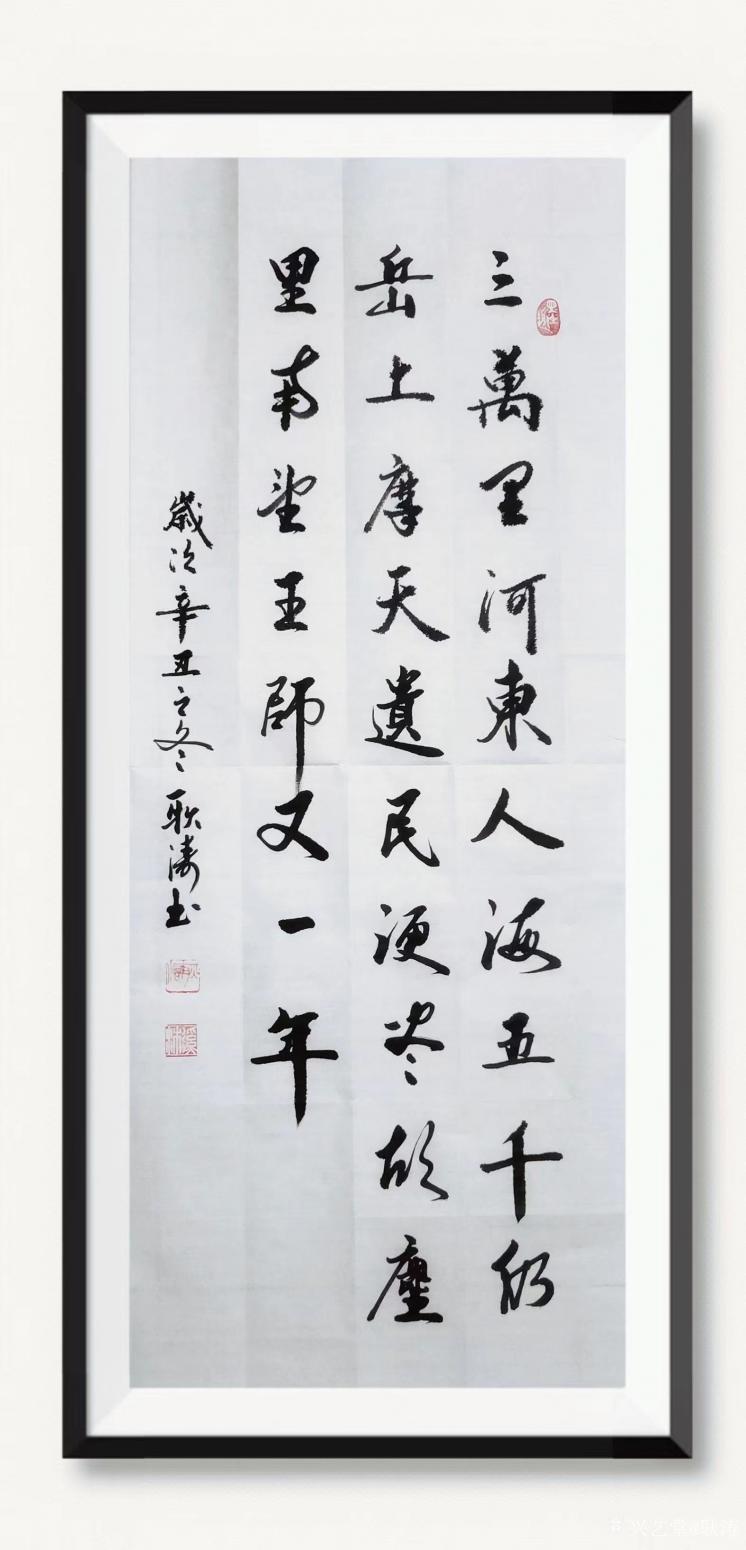 三萬里河東入海五千仞
岳上摩天遺民泪尽胡塵
里南望王師又一年
歲次辛丑之冬耿濤书
兴艺堂@耿涛